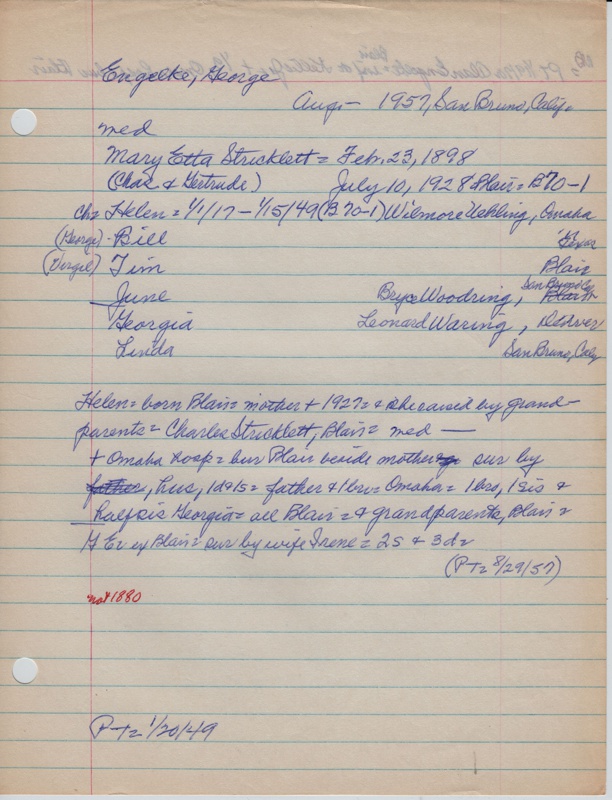 Engelke, George
Aug — 1957, San Bruno, Calif.
med
Mary Etta Stricklett = Feb. 23, 1898
(Chas & Gertrude) July 10, 1928 Blair = B70-1
Ch = Helen = 1/1/17 - 1/15/49 (B70-1) Wilmore Uehling, Omaha
(George) - Bill Texas
(Virgil) Tim Blair
June Bryce Woodring, San Bruno Calif
Georgia Leonard Waring, Denver
Linda San Bruno, Calif
Helen = born Blair = mother + 1927 = & she raised by grand-
parents = Charles Stricklett, Blair = med —
+ Omaha hosp = bur Blair beside mother sur by
father, hus, 1d & 1s = father & 1 bro = Omaha = 1 bro, 1 sis &
half sis Georgia = all Blair = & grandparents, Blair =
G E ex Blair = sur by wife Irene = 2s & 3d =
(PT = 8/29/57)
not 1880
PT = 1/20/49